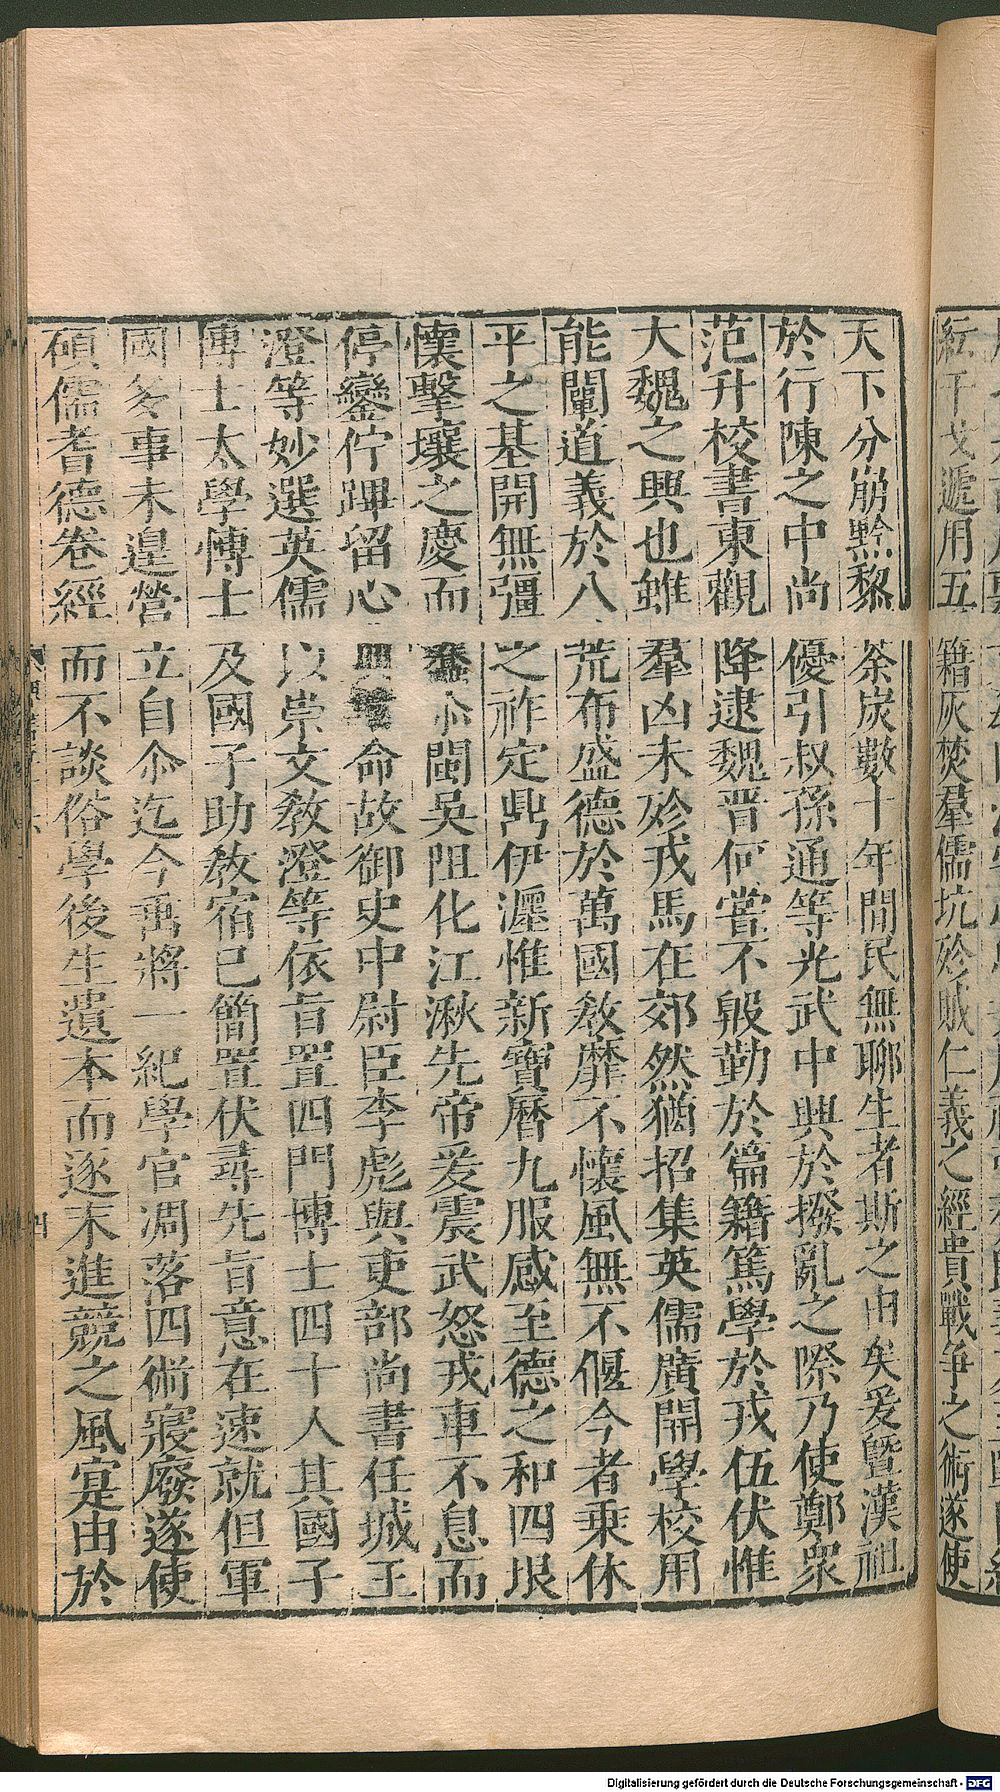 紜干戈遞用五籍灰焚羣儒坑殄賊仁義之經貴戰爭之術遂使
天下分崩黔黎荼炭數十年間民無聊生者斯之由矣爰暨漢祖
於行陳之中尚優引叔孫通等光武中興於撥亂之際乃使鄭衆
范升校書東觀降逮魏晉何嘗不殷勤於篇籍篤學於戎伍伏惟
大魏之興也雖羣凶未殄戎馬在郊然猶招集英儒廣開學校用
能闡道義於八荒布盛德於萬國敎靡不懷風無不偃今者乘休
平之基開無彊之祚定鼎伊瀍惟新寶曆九服感至德之和四垠
懷擊壤之慶而蠢尒閩吳阻化江湫先帝爰震武怒戎車不息而
停鑾佇蹕留心命故御史中尉臣李彪與吏部尚書任城王
澄等妙選英儒以崇文敎澄等依旨置四門博士四十人其國子
博士太學博士及國子助敎宿已簡置伏尋先旨意在速就但軍
國多事未遑營立自尒迄今垂將一紀學官凋落四術寢廢遂使
碩儒耆德卷經而不談俗學後生遺本而逐末進競之風寔由於
四
Digitalisierung gefördert durch die Deutsche Forschungsgemeinschaft - DFG